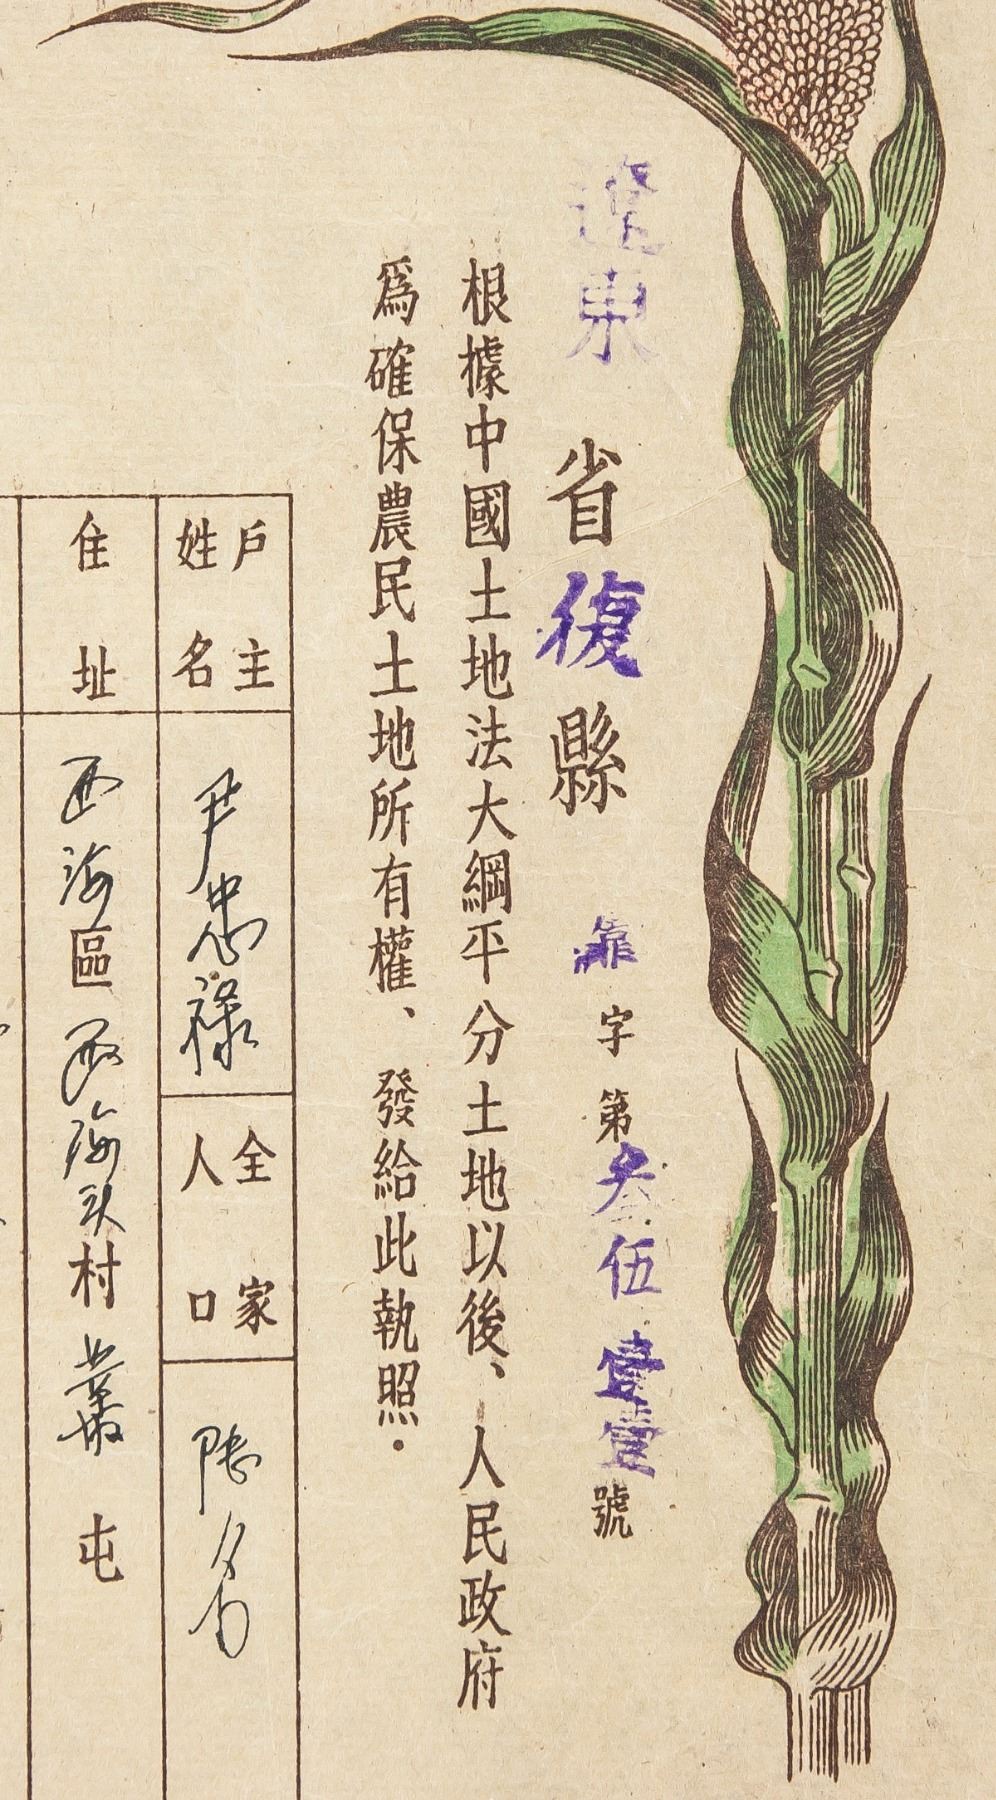 遼東省復縣 靠字第叁伍壹壹號
根據中國土地法大綱平分土地以後、人民政府
爲確保農民土地所有權、發給此執照．
戶主姓名 尹忠祿 全家人口 陸名
住址 西海區西海头村叢屯